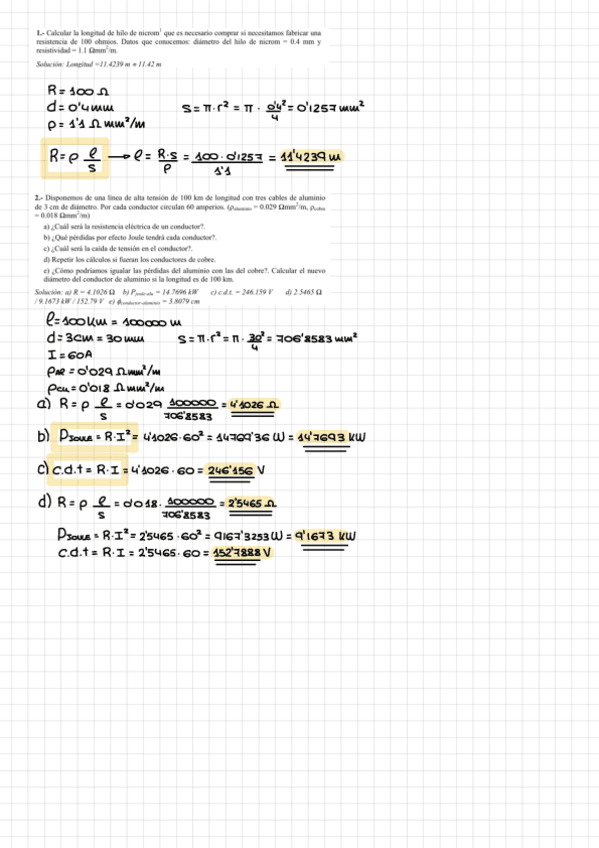 1.- Calcular la longitud de hilo de nicrom¹ que es necesario comprar si necesitamos fabricar una
resistencia de 100 ohmios. Datos que conocemos: diámetro del hilo de nicrom = 0.4 mm y
resistividad = 1.1 Ωmm²/m.
Solución: Longitud =11.4239 m ≈ 11.42 m
R = 100 Ω
d = 0'4 mm
S = π·r² = π · 0'4²/4 = 0'1257 mm²
ρ = 1'1 Ω mm²/m
R = ρ l/s → l = R·s/ρ = 100·0'1257/1'1 = 11'4239 m
2.- Disponemos de una línea de alta tensión de 100 km de longitud con tres cables de aluminio
de 3 cm de diámetro. Por cada conductor circulan 60 amperios. (ρaluminio = 0.029 Ωmm²/m, ρcobre
= 0.018 Ωmm²/m)
a) ¿Cuál será la resistencia eléctrica de un conductor?.
b) ¿Qué pérdidas por efecto Joule tendrá cada conductor?.
c) ¿Cuál será la caída de tensión en el conductor?.
d) Repetir los cálculos si fueran los conductores de cobre.
e) ¿Cómo podríamos igualar las pérdidas del aluminio con las del cobre?. Calcular el nuevo
diámetro del conductor de aluminio si la longitud es de 100 km.
Solución: a) R = 4.1026 Ω b) = 14.7696 kW c) c.d.t. = 246.159 V d) 2.5465 Ω
/ 9.1673 kW / 152.79 V e) ϕconductor-aluminio = 3.8079 cm
l = 100 Km = 100000 m
d = 3cm = 30 mm
S = π·r² = π · 30²/4 = 706'8583 mm²
I = 60A
ρAl = 0'029 Ω mm²/m
ρcu = 0'018 Ω mm²/m
a) R = ρ l/s = 0'029 100000/706'8583 = 4'1026 Ω
b) PJOULE = R·I² = 4'1026·60² = 14769'36 W = 14'7693 KW
c) c.d.t = R·I = 4'1026·60 = 246'156 V
d) R = ρ l/s = 0'018 · 100000/706'8583 = 2'5465 Ω
PJOULE = R·I² = 2'5465·60² = 9167'3253 W = 9'1673 KW
c.d.t = R·I = 2'5465·60 = 152'7888 V